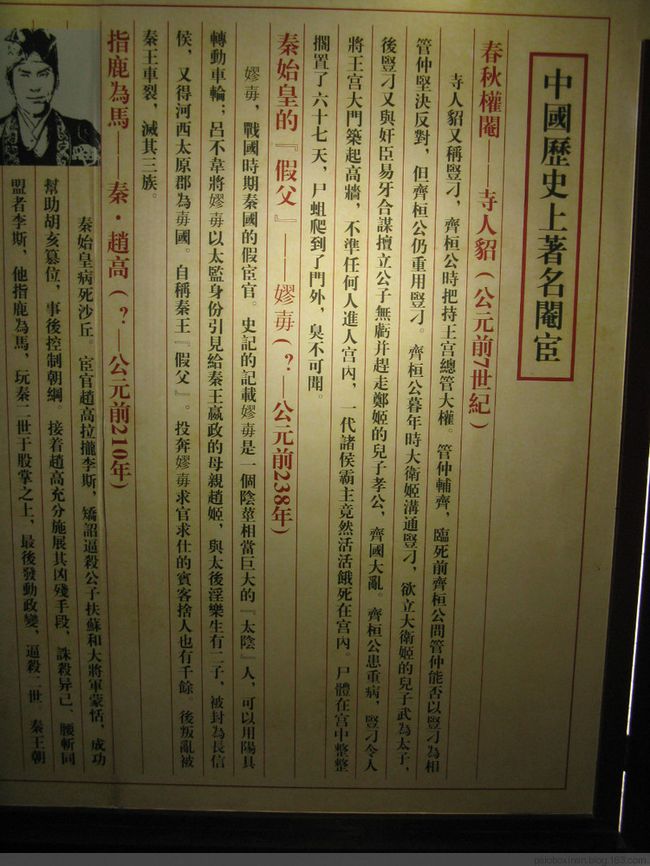 中國歷史上著名閹宦
春秋權閹——寺人貂(公元前7世紀)
寺人貂又稱豎刁，齊桓公時把持王宮總管大權。管仲輔齊，臨死前齊桓公問管仲能否以豎刁為相
管仲堅決反對，但齊桓公仍重用豎刁。齊桓公暮年時大衛姬溝通豎刁，欲立大衛姬的兒子武為太子，
後豎刁又與奸臣易牙合謀擅立公子無虧并趕走鄭姬的兒子孝公，齊國大亂。齊桓公患重病，豎刁令人
將王宮大門築起高牆，不準任何人進入宮內，一代諸侯霸主竟然活活餓死在宮內。尸體在宮中整整
擱置了六十七天，尸蛆爬到了門外，臭不可聞。
秦始皇的『假父』——嫪毐(？—公元前238年)
嫪毐，戰國時期秦國的假宦官。史記的記載嫪毐是一個陰莖相當巨大的『太陰』人，可以用陽具
轉動車輪；呂不韋將嫪毐以太監身份引見給秦王嬴政的母親趙姬，與太後淫樂生有二子，被封為長信
侯，又得河西太原郡為毐國。自稱秦王『假父』。投奔嫪毐求官求仕的賓客捨人也有千餘。後叛亂被
秦王車裂，滅其三族。
指鹿為馬——秦·趙高(？—公元前210年)
秦始皇病死沙丘。宦官趙高拉攏李斯，矯詔逼殺公子扶蘇和大將軍蒙恬，成功
幫助胡亥篡位，事後控制朝綱。接着趙高充分施展其凶殘手段，誅殺异己，腰斬同
盟者李斯，他指鹿為馬，玩秦二世于股掌之上，最後發動政變，逼殺二世，秦王朝
pipiboxinan.blog.163.com